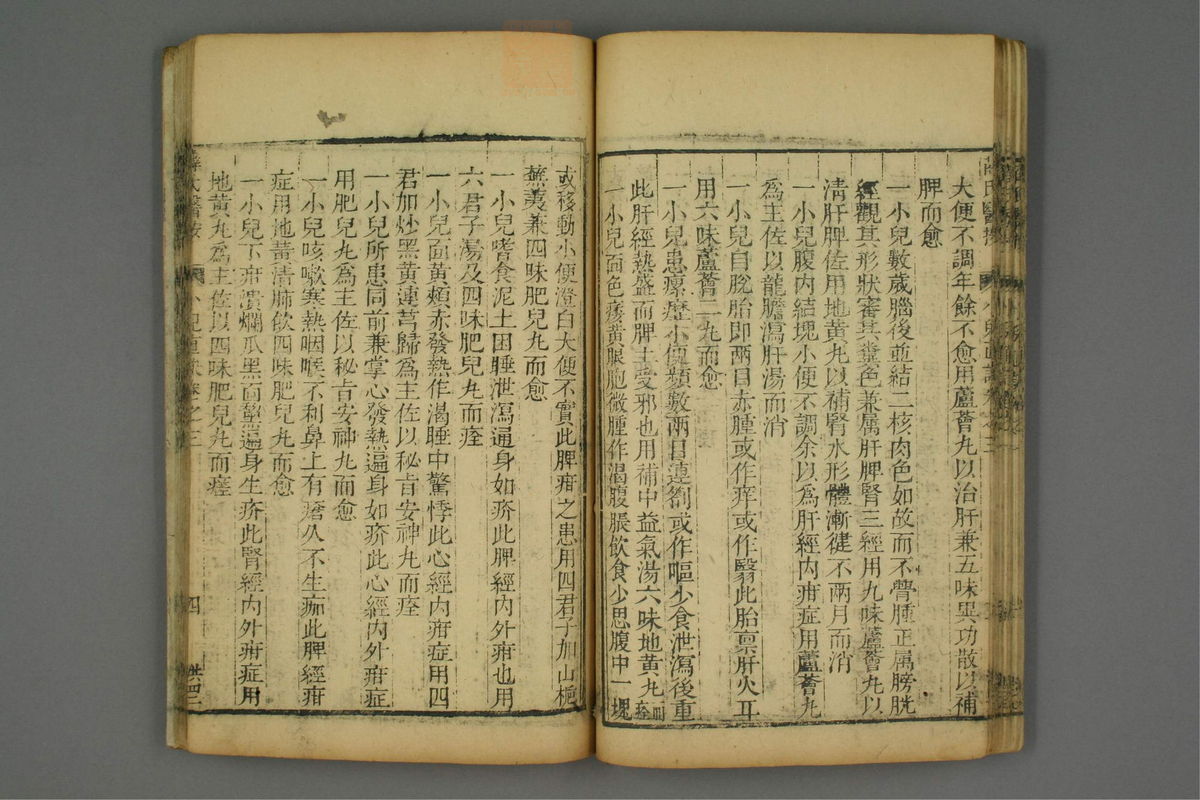 大便不調年餘不愈用蘆薈丸以治肝兼五味異功散以補
脾而愈
一小兒數歲腦後並結二核肉色如故而不臖腫正属膀胱
經觀其形狀審其氣色兼属肝脾腎三經用九味蘆薈丸以
清肝脾佐用地黃丸以補腎水形體漸健不兩月而消
一小兒腹內結塊小便不調余以爲肝經內疳症用蘆薈丸
爲主佐以龍膽瀉肝湯而消
一小兒自脫胎即兩目赤腫或作痒或作翳此胎禀肝火耳
用六味蘆薈二丸而愈
一小兒患瘰癧小便頻數兩目連劄或作嘔少食泄瀉後重
此肝經熱盛而脾土受邪也用補中益氣湯六味地黃丸而痊
一小兒面色痿黃眼胞微腫作渴腹脹飲食少思腹中一塊
或移動小便澄白大便不實此脾疳之患用四君子加山梔
蕪荑兼四味肥兒丸而愈
一小兒嗜食泥土困睡泄瀉遍身如疥此脾經內外疳也用
六君子湯及四味肥兒丸而痊
一小兒面黃頰赤發熱作渴睡中驚悸此心經內疳症用四
君加炒黑黃連芎歸爲主佐以秘旨安神丸而痊
一小兒所患同前兼掌心發熱遍身如疥此心經內外疳症
用肥兒丸爲主佐以秘旨安神丸而愈
一小兒咳嗽寒熱咽喉不利鼻上有瘡久不生痂此脾經疳
症用地黃清肺飲四味肥兒丸而愈
一小兒下疳潰爛爪黑面黧遍身生疥此腎經內外疳症用
地黃丸爲主佐以四味肥兒丸而痊
薛氏醫按 小兒直訣卷之三 四